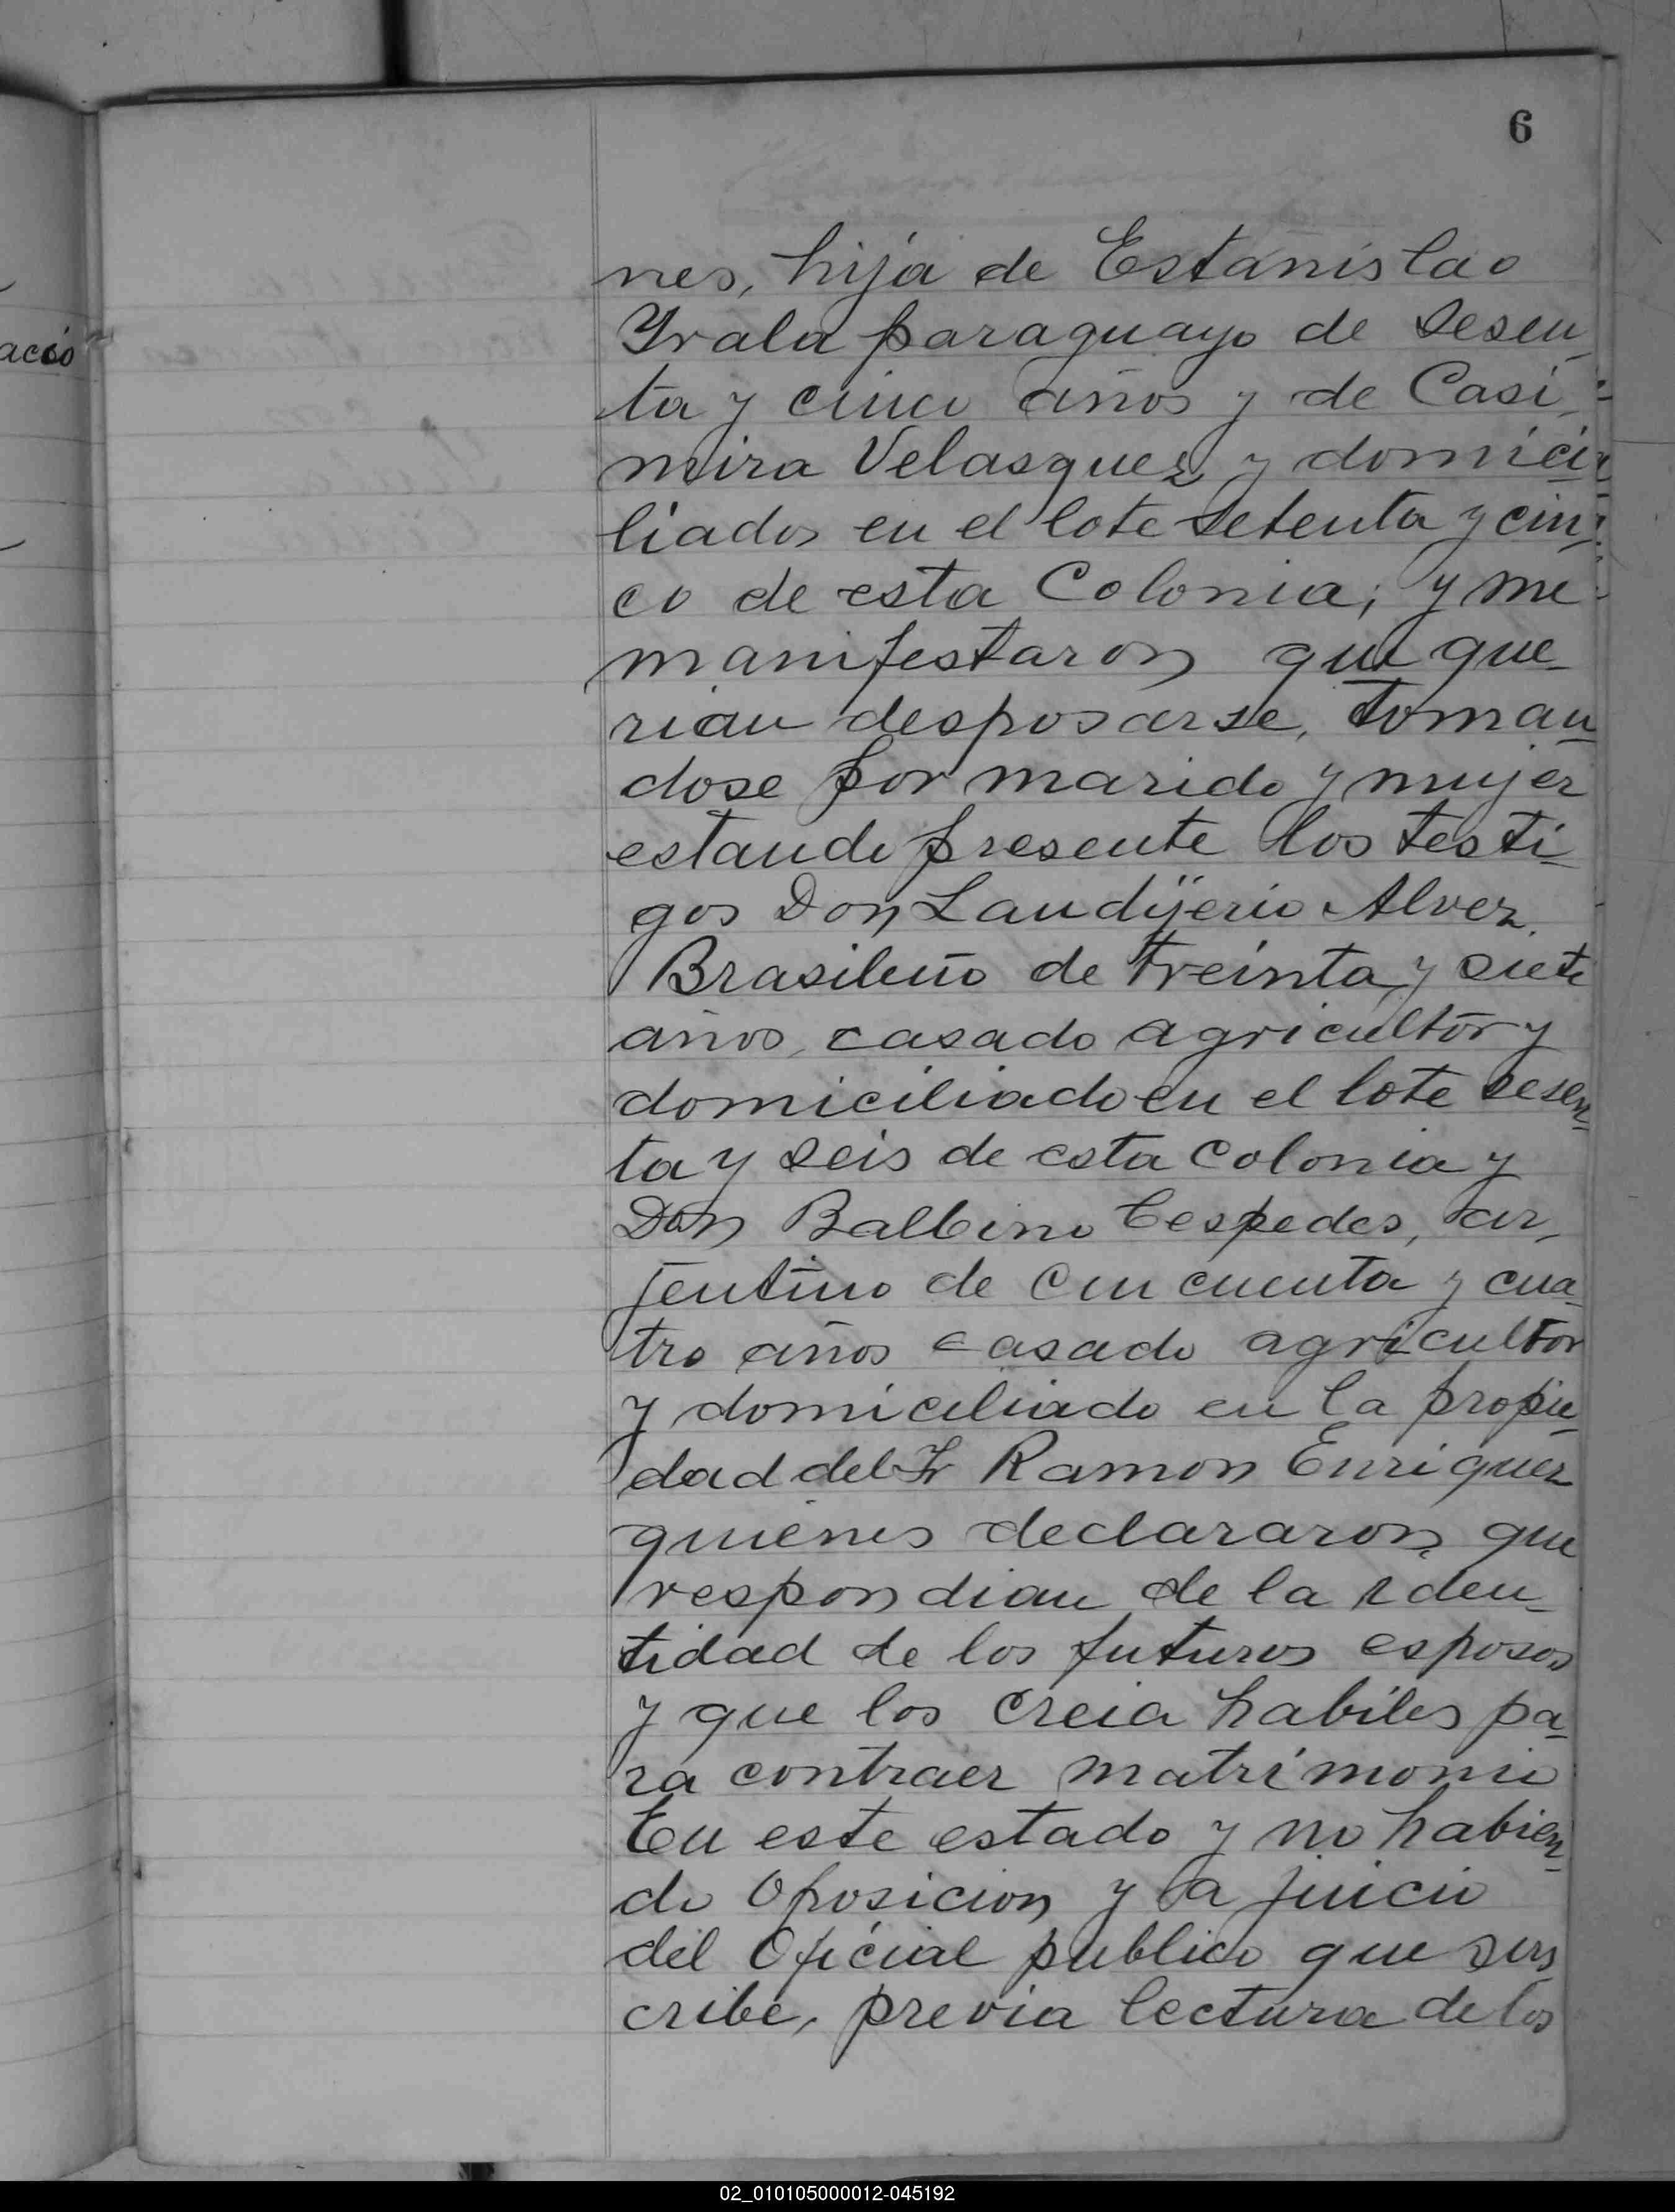 6
nes, hija de Estanislao
Yrala paraguayo de sesen
ta y cinco años y de Casi
mira Velasquez y domici
liados en el lote setenta y cin
co de esta Colonia; y me
manifestaron que que
rian desposarse, toman
dose por marido y mujer
estando presente los testi
gos Don Laudijerio Alvez
Brasileño de treinta y siete
años, casado agricultor y
domiciliado en el lote sesen
ta y seis de esta colonia y
Don Balbino Cespedes, ar
jentino de cincuenta y cua
tro años casado agricultor
y domiciliado en la propie
dad del Sr Ramon Enriquez
quienes declararon que
respondian de la iden
tidad de los futuros esposos
y que los creia habiles pa
ra contraer matrimonio
En este estado y no habien
do oposicion y a juicio
del Oficial publico que sus
cribe, previa lectura de los
02_010105000012-045192